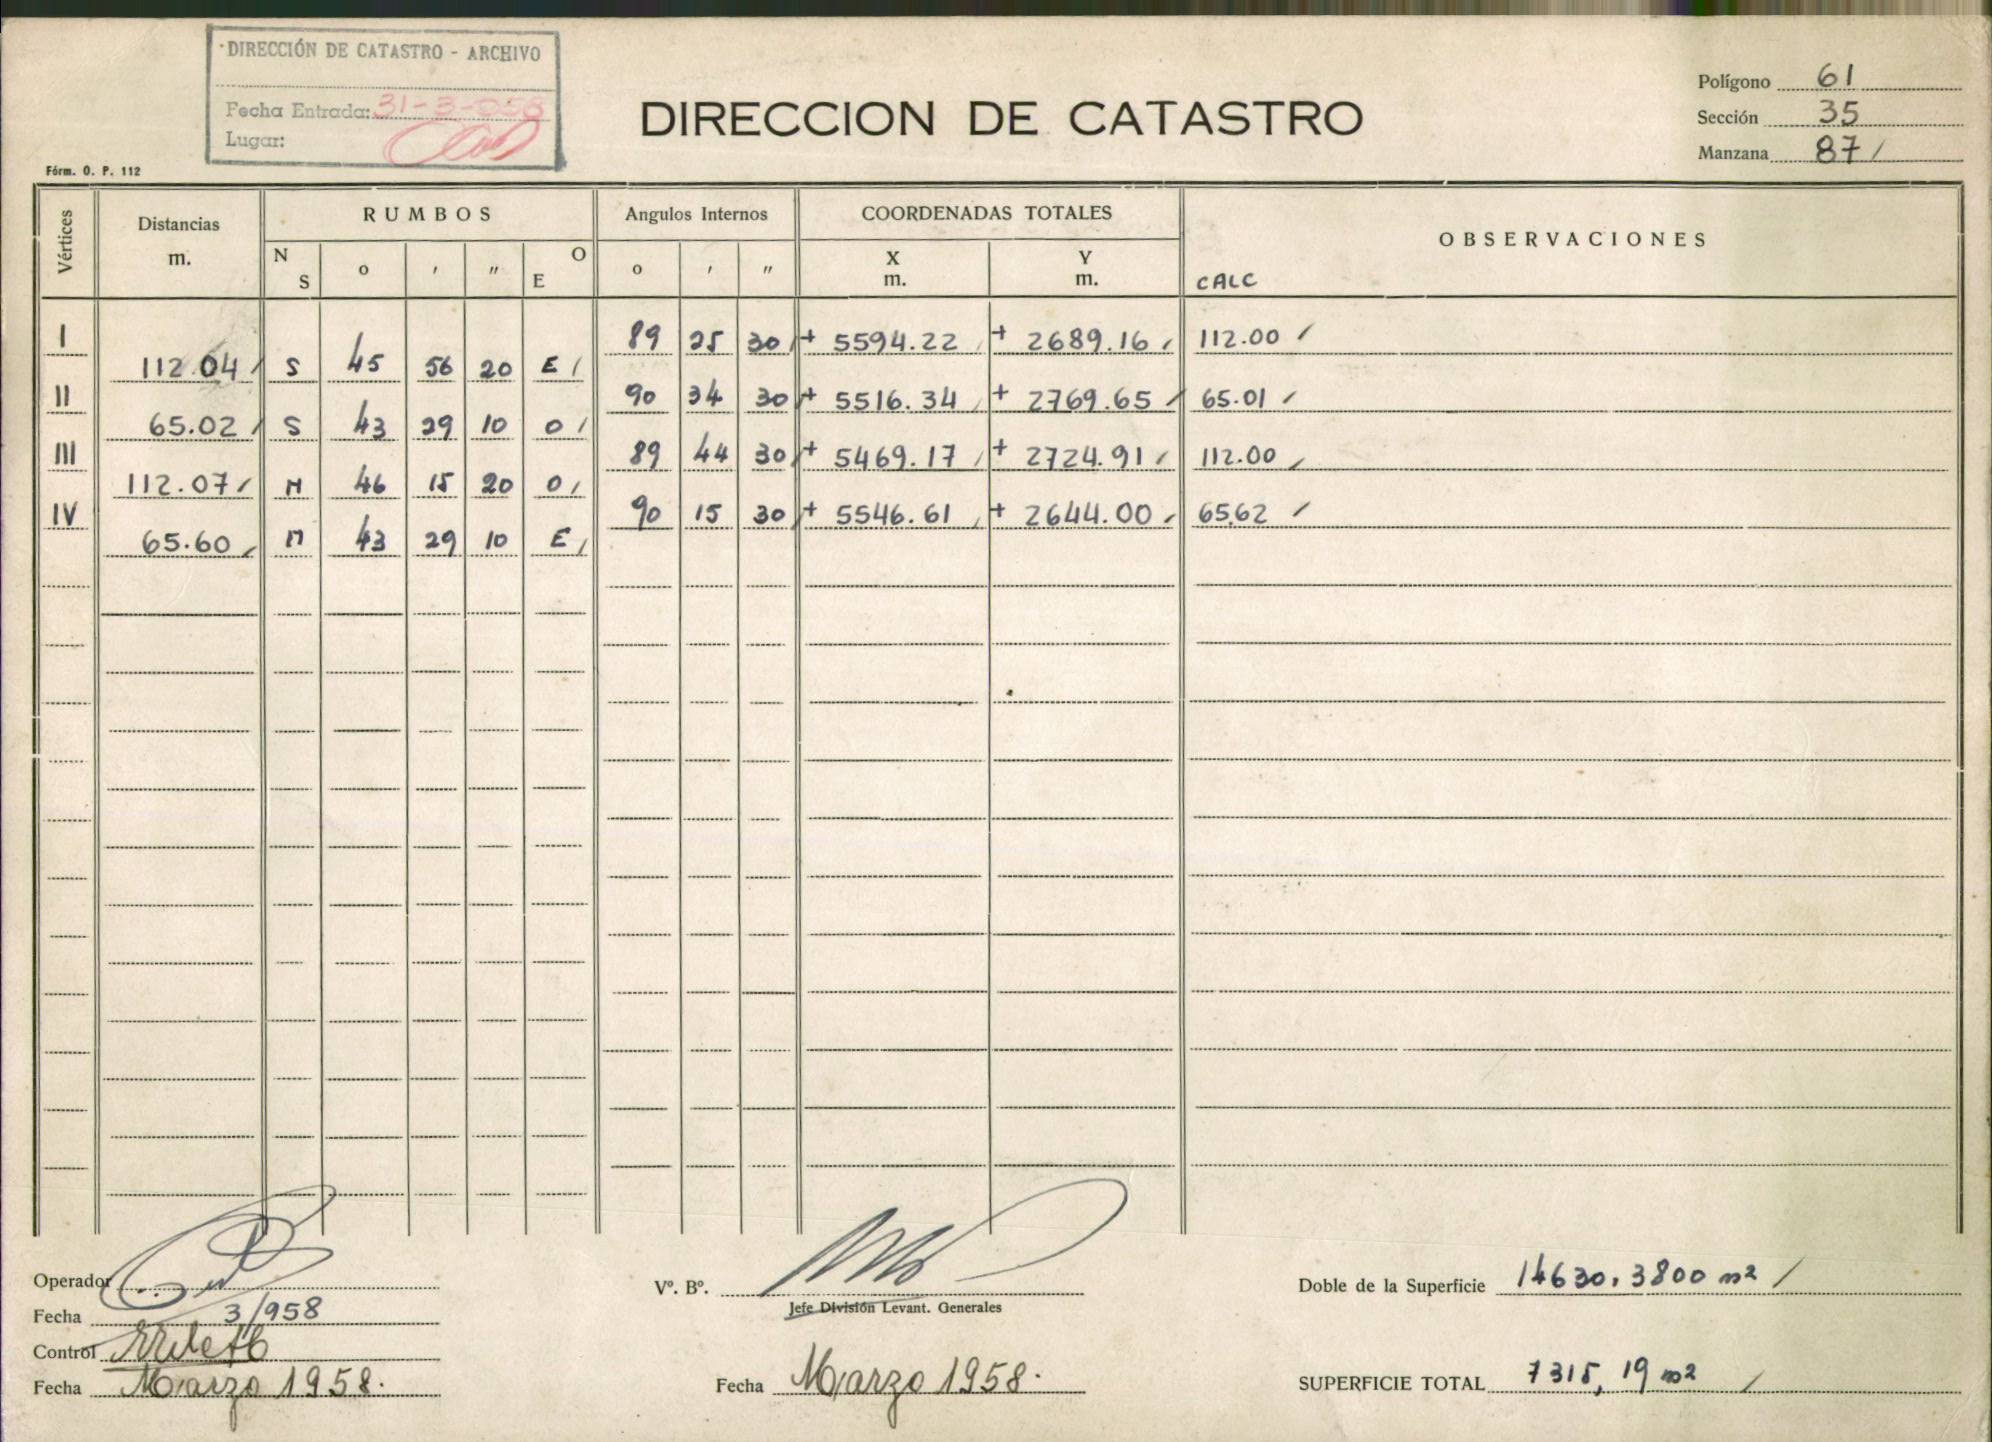 DIRECCIÓN DE CATASTRO - ARCHIVO
Fecha Entrada: 31-3-958
Lugar:
Fórm. O. P. 112
DIRECCION DE CATASTRO
Polígono 61
Sección 35
Manzana 87
Vértices Distancias m. RUMBOS Angulos Internos COORDENADAS TOTALES OBSERVACIONES
N S o ' " O E o ' " X m. Y m. CALC
I 89 25 30 + 5594.22 + 2689.16 112.00
112.04 S 45 56 20 E
II 90 34 30 + 5516.34 + 2769.65 65.01
65.02 S 43 29 10 O
III 89 44 30 + 5469.17 + 2724.91 112.00
112.07 N 46 15 20 O
IV 90 15 30 + 5546.61 + 2644.00 65,62
65.60 N 43 29 10 E
Operador
Fecha 3/958
Control
Fecha Marzo 1958.
Vº. Bº.
Jefe División Levant. Generales
Fecha Marzo 1958.
Doble de la Superficie 14630.3800 m2
SUPERFICIE TOTAL 7315,19 m2